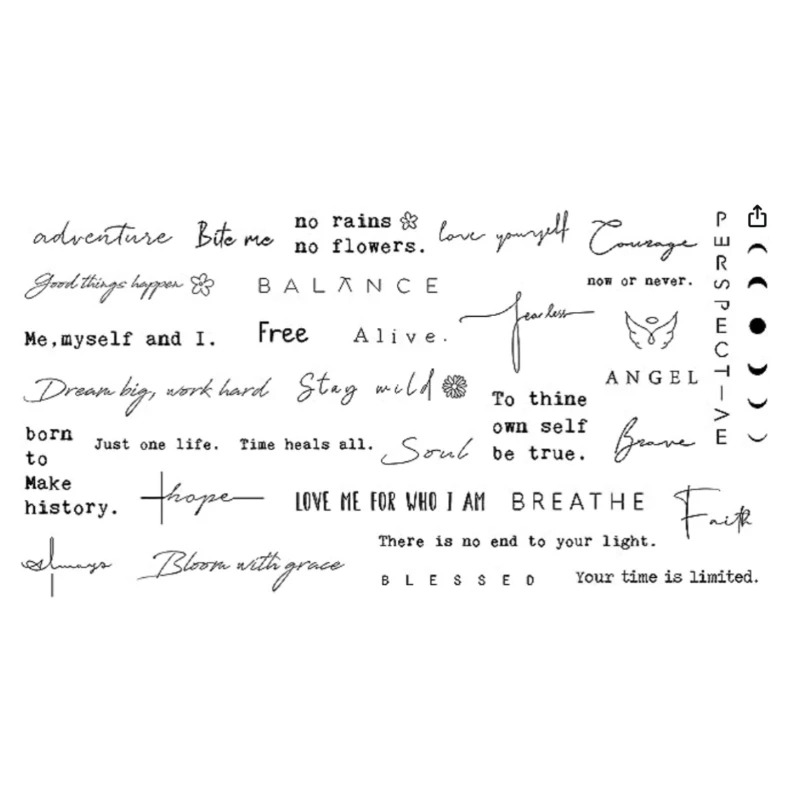 adventure
Bite me
no rains
no flowers.
love yourself
Courage
PERSPECTIVE
Good things happen
BALANCE
now or never.
fearless
Me,myself and I.
Free
Alive.
ANGEL
Dream big, work hard
Stay wild
To thine
own self
be true.
born
to
Make
history.
Just one life.
Time heals all.
Soul
Brave
hope
LOVE ME FOR WHO I AM
BREATHE
Faith
always
Bloom with grace
There is no end to your light.
BLESSED
Your time is limited.